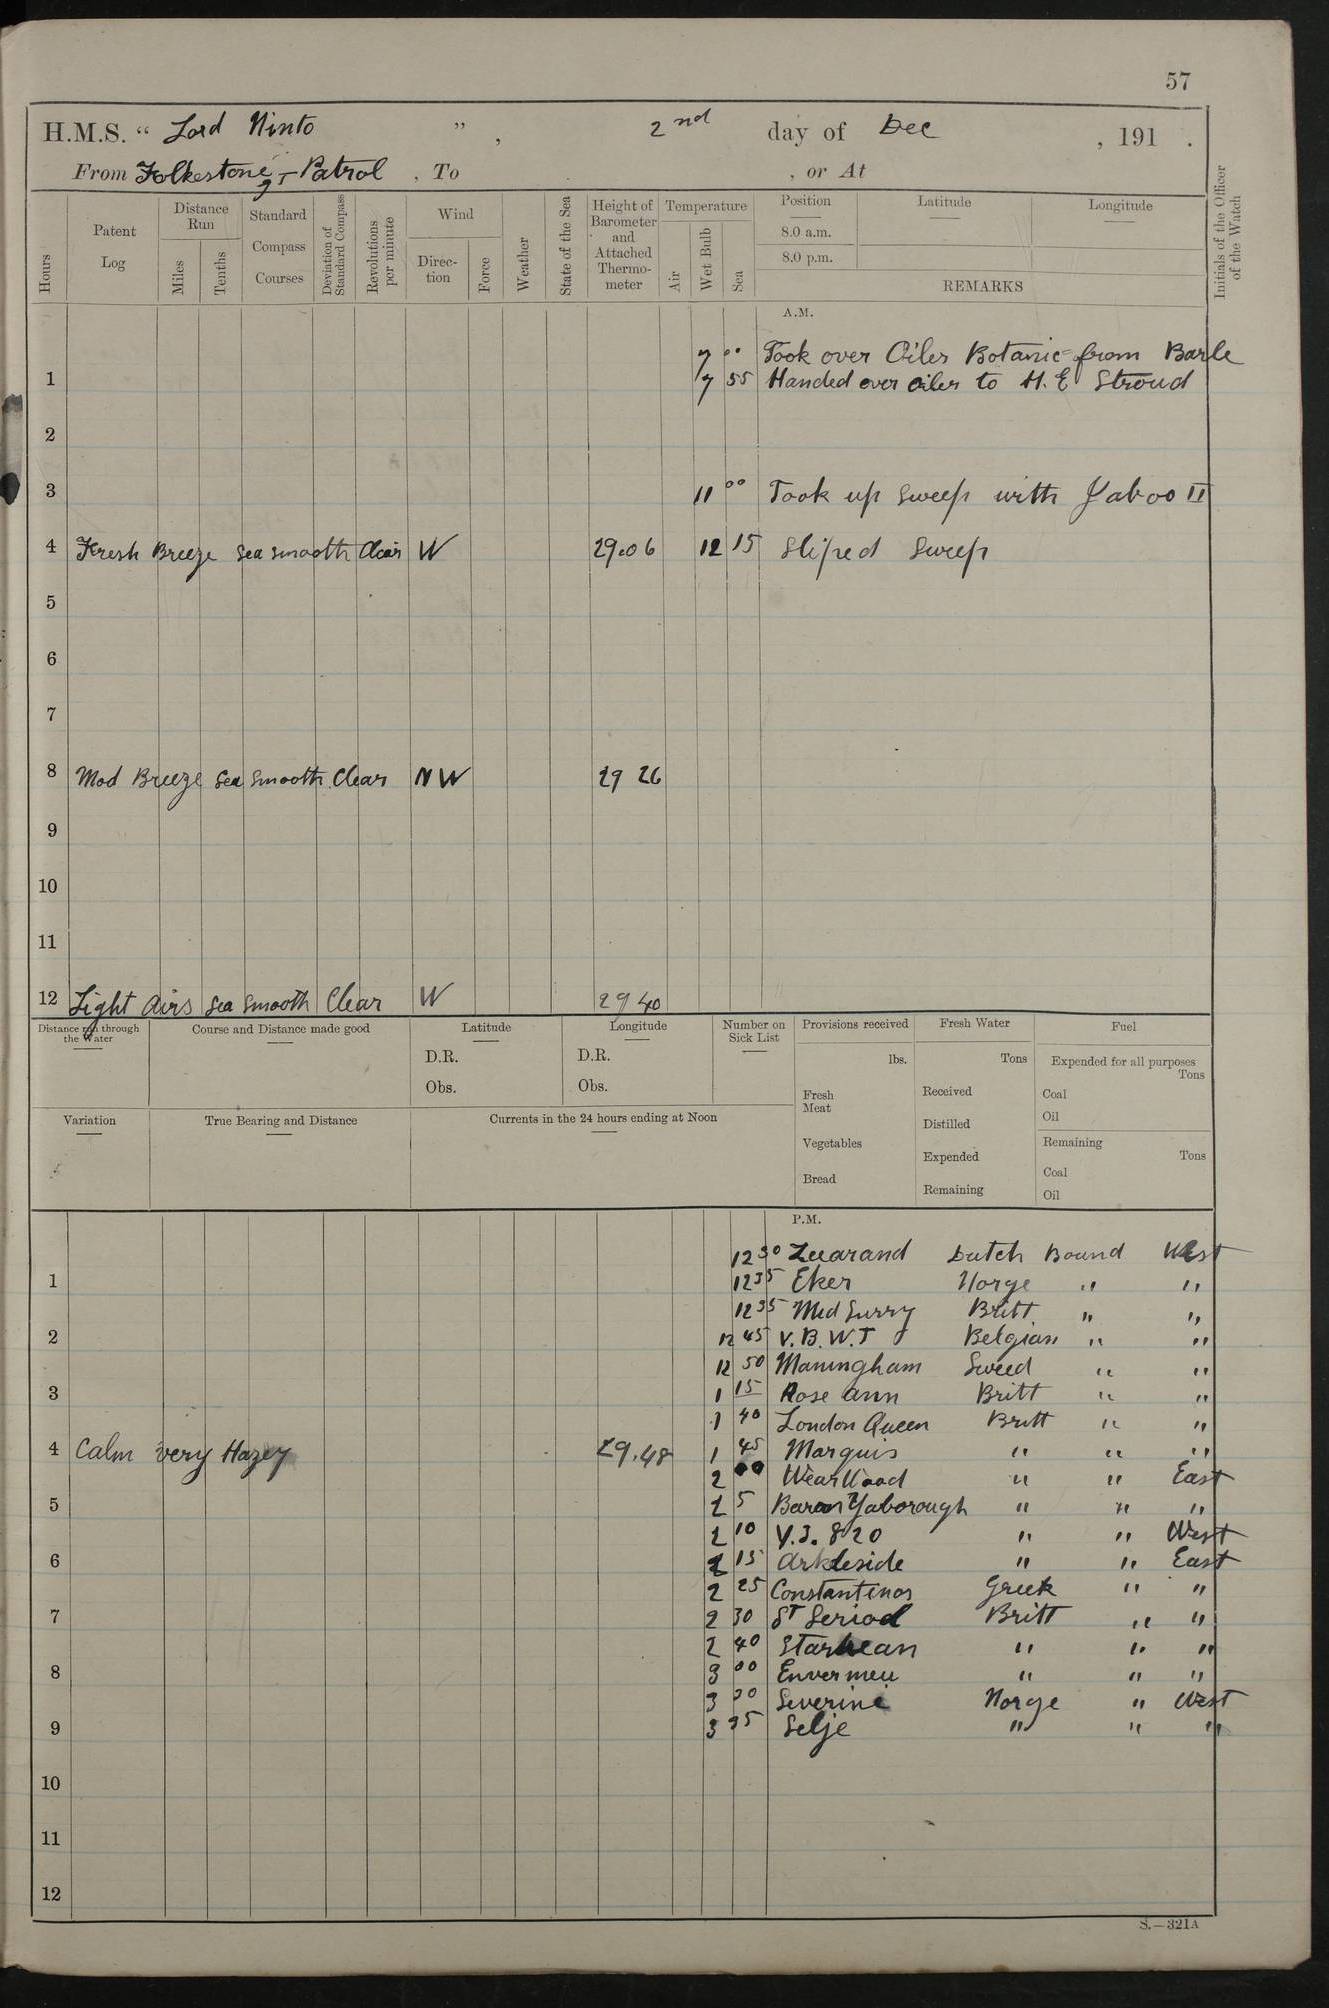 57
H.M.S. “ Lord Minto ” , 2nd day of Dec , 191 .
From Folkestone - Patrol , To , or At
Hours
Patent Log
Distance Run
Miles
Tenths
Standard Compass Courses
Deviation of Standard Compass
Revolutions per minute
Wind
Direction
Force
Weather
State of the Sea
Height of Barometer and Attached Thermometer
Temperature
Air
Wet Bulb
Sea
Position
8.0 a.m.
8.0 p.m.
Latitude
Longitude
REMARKS
Initials of the Officer of the Watch
A.M.
7 00 Took over Oiler Botanic from Barle
1 7 55 Handed over oiler to H.E Stroud
2
3 11 00 Took up sweep with Yaboo II
4 Fresh Breeze Sea smooth Clear W 29.06 12 15 Sliped Sweep
5
6
7
8 Mod Breeze Sea Smooth Clear NW 29 26
9
10
11
12 Light airs Sea Smooth Clear W 29 40
Distance run through the Water
Course and Distance made good
Latitude
D.R.
Obs.
Longitude
D.R.
Obs.
Number on Sick List
Provisions received
lbs.
Fresh Meat
Vegetables
Bread
Fresh Water
Tons
Received
Distilled
Expended
Remaining
Fuel
Expended for all purposes
Tons
Coal
Oil
Remaining
Tons
Coal
Oil
Variation
True Bearing and Distance
Currents in the 24 hours ending at Noon
P.M.
12 30 Zuarand Dutch Bound West
1 12 35 Eker Norge " "
12 35 Med Surry Britt " "
2 12 45 V.B.W.T Belgian " "
12 50 Maningham Sweed " "
3 1 15 Rose ann Britt " "
1 40 London Queen Britt " "
4 Calm very Hazey 29.48 1 45 Marquis " " "
2 00 WearWood " " East
5 2 5 Baron Yaborough " " "
2 10 Y.3. 820 " " West
6 2 15 Arkleside " " East
2 25 Constantinos Greek " "
7 2 30 St Seriod Britt " "
2 40 " " "
8 3 00 Envermeu " " "
3 30 Severine Norge " West
9 3 35 Selje " " "
10
11
12
S.—321A